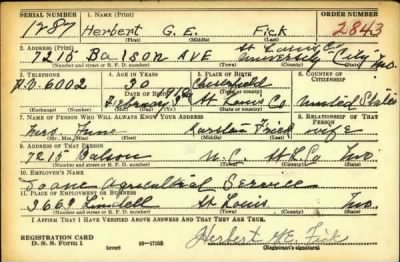 SERIAL NUMBER 1. NAME (Print) ORDER NUMBER
1287 Herbert G. E. Fick 2843
(First) (Middle) (Last)
2. ADDRESS (Print)
7215 Balson AVE University City Mo.
(Number and street or R. F. D. number) (Town) (County) (State)
3. TELEPHONE 4. AGE IN YEARS 5. PLACE OF BIRTH 6. COUNTRY OF CITIZENSHIP
6002 30 Chesterfield
DATE OF BIRTH (Town or county)
February St Louis Co United States
(Exchange) (Number) (Mo.) (Day) (Yr.) (State or country)
7. NAME OF PERSON WHO WILL ALWAYS KNOW YOUR ADDRESS 8. RELATIONSHIP OF THAT PERSON
Mrs. Fick wife
(Mr., Mrs., Miss) (First) (Middle) (Last)
9. ADDRESS OF THAT PERSON
7215 Balson U. C. St L. Co Mo.
(Number and street or R. F. D. number) (Town) (County) (State)
10. EMPLOYER'S NAME
Doane Agricultural Service
11. PLACE OF EMPLOYMENT OR BUSINESS
3669 Lindell St Louis Mo.
(Number and street or R. F. D. number) (Town) (County) (State)
I AFFIRM THAT I HAVE VERIFIED ABOVE ANSWERS AND THAT THEY ARE TRUE.
REGISTRATION CARD
D. S. S. Form 1 (over) Herbert G. E. Fick
(Registrant's signature)